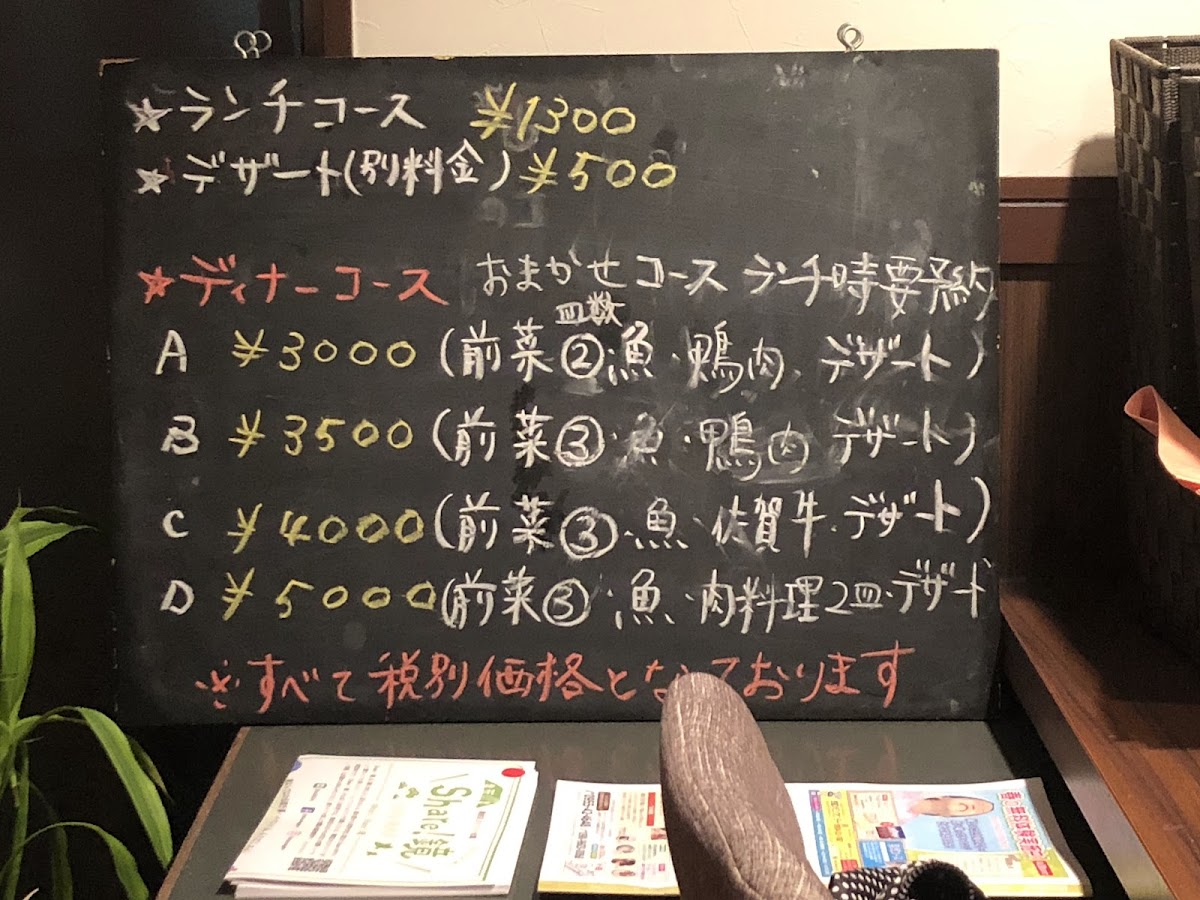 ★ランチコース ¥1300
★デザート(別料金)¥500
★ディナーコース おまかせコース ランチ時要予約
皿数
A ¥3000(前菜②・魚・鴨肉、デザート)
B ¥3500(前菜③・魚・鴨肉 デザート)
C ¥4000(前菜③・魚・佐賀牛・デザート)
D ¥5000(前菜③・魚・肉料理2皿・デザート
※すべて税別価格となっております
Share!鏡